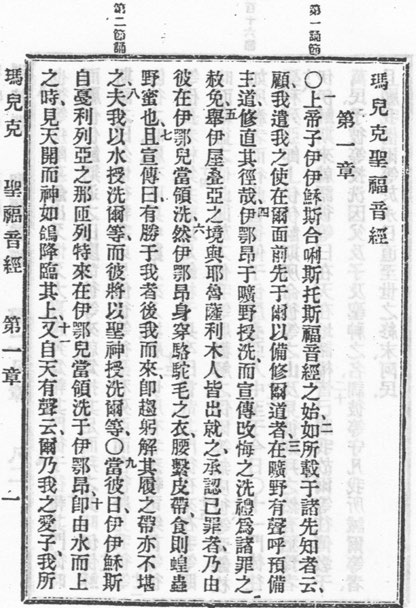 第一誦節
瑪兒克聖福音經
第一章
一〇上帝子伊伊穌斯合唎斯托斯福音經之始二如所載于諸先知者云、
顧我遣我之使在爾面前先于爾以備修爾道者三在曠野有聲呼預備
主道、修直其徑哉、四伊鄂昂于曠野授洗、而宣傳改悔之洗禮為諸罪之
赦免、五舉伊屋疊亞之境與耶魯薩利木人皆出就之、承認己罪者、乃由
彼在伊鄂兒當領洗、六然伊鄂昂身穿駱駝毛之衣、腰繫皮帶、食則蝗蟲
野蜜也、七且宣傳曰、有勝于我者後我而來、卽趨躬解其履之帶亦不堪
第二節誦
之、八夫我以水授洗爾等、而彼將以聖神授洗爾等、〇九當彼日伊伊穌斯
自戞利列亞之那匝列特來在伊鄂兒當領洗于伊鄂昂、十卽由水而上
之時、見天開而神如鴿降臨其上、十一又自天有聲云、爾乃我之愛子、我所
瑪兒克 聖福音經 第一章 一